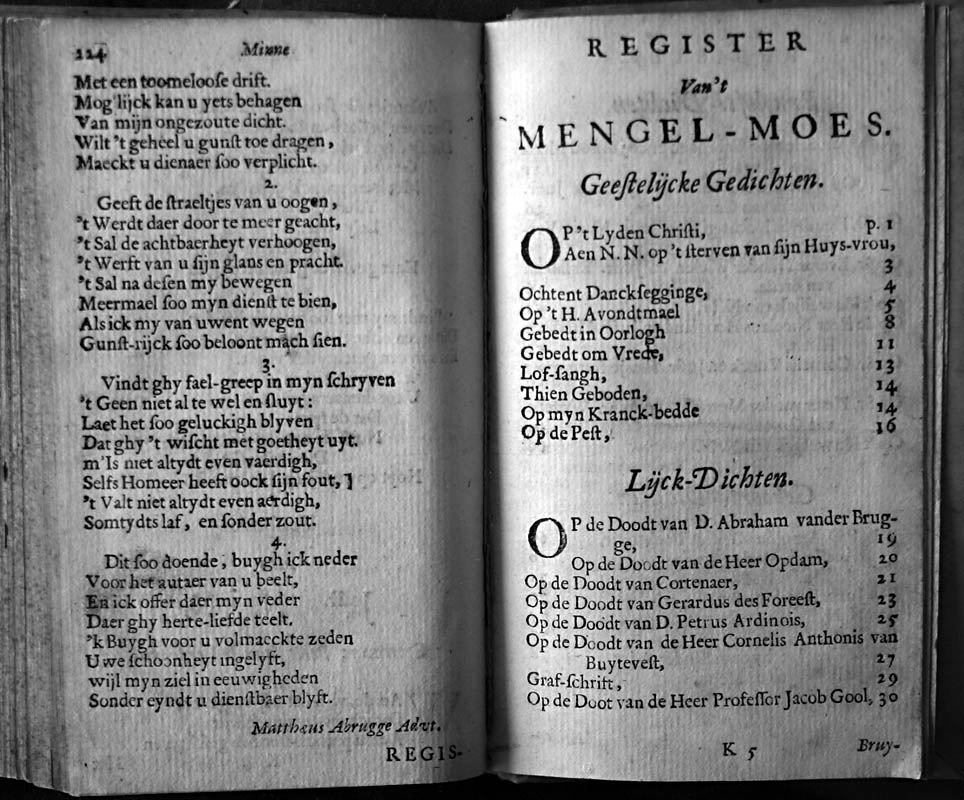 224 Minne
Met een toomelooſe drift.
Mog'lijck kan u yets behagen
Van mijn ongezoute dicht.
Wilt 't geheel u gunſt toe dragen,
Maeckt u dienaer ſoo verplicht.
2.
Geeft de ſtraeltjes van u oogen,
't Werdt daer door te meer geacht,
't Sal de achtbaerheyt verhoogen,
't Werft van u ſijn glans en pracht.
't Sal na deſen my bewegen
Meermael ſoo myn dienſt te bien,
Als ick my van uwent wegen
Gunſt-rijck ſoo beloont mach ſien.
3.
Vindt ghy fael-greep in myn ſchryven
't Geen niet al te wel en ſluyt:
Laet het ſoo geluckigh blyven
Dat ghy 't wiſcht met goetheyt uyt.
m'Is niet altydt even vaerdigh,
Selfs Homeer heeft oock ſijn fout,
't Valt niet altydt even aerdigh,
Somtydts laf, en ſonder zout.
4.
Dit ſoo doende, buygh ick neder
Voor het autaer van u beelt,
En ick offer daer myn veder
Daer ghy herte-liefde teelt.
'k Buygh voor u volmaeckte zeden
Uwe ſchoonheyt ingelyft,
wijl myn ziel in eeuwigheden
Sonder eyndt u dienſtbaer blyft.
Matthæus Abrugge Advt.
REGIS-
REGISTER
Van't
MENGEL-MOES.
Geeſtelijcke Gedichten.
OP 't Lyden Chriſti, p. 1
Aen N. N. op 't ſterven van ſijn Huys-vrou,
3
Ochtent Danckſegginge, 4
Op 't H. Avondtmael 5
Gebedt in Oorlogh 8
Gebedt om Vrede, 11
Lof-ſangh, 13
Thien Geboden, 14
Op myn Kranck-bedde 14
Op de Peſt, 16
Lijck-Dichten.
OP de Doodt van D. Abraham vander Brug-
ge, 19
Op de Doodt van de Heer Opdam, 20
Op de Doodt van Cortenaer, 21
Op de Doodt van Gerardus des Foreeſt, 23
Op de Doodt van D. Petrus Ardinois, 25
Op de Doodt van de Heer Cornelis Anthonis van
Buyteveſt, 27
Graf-ſchrift, 29
Op de Doot van de Heer Profeſſor Jacob Gool, 30
K 5 Bruy-